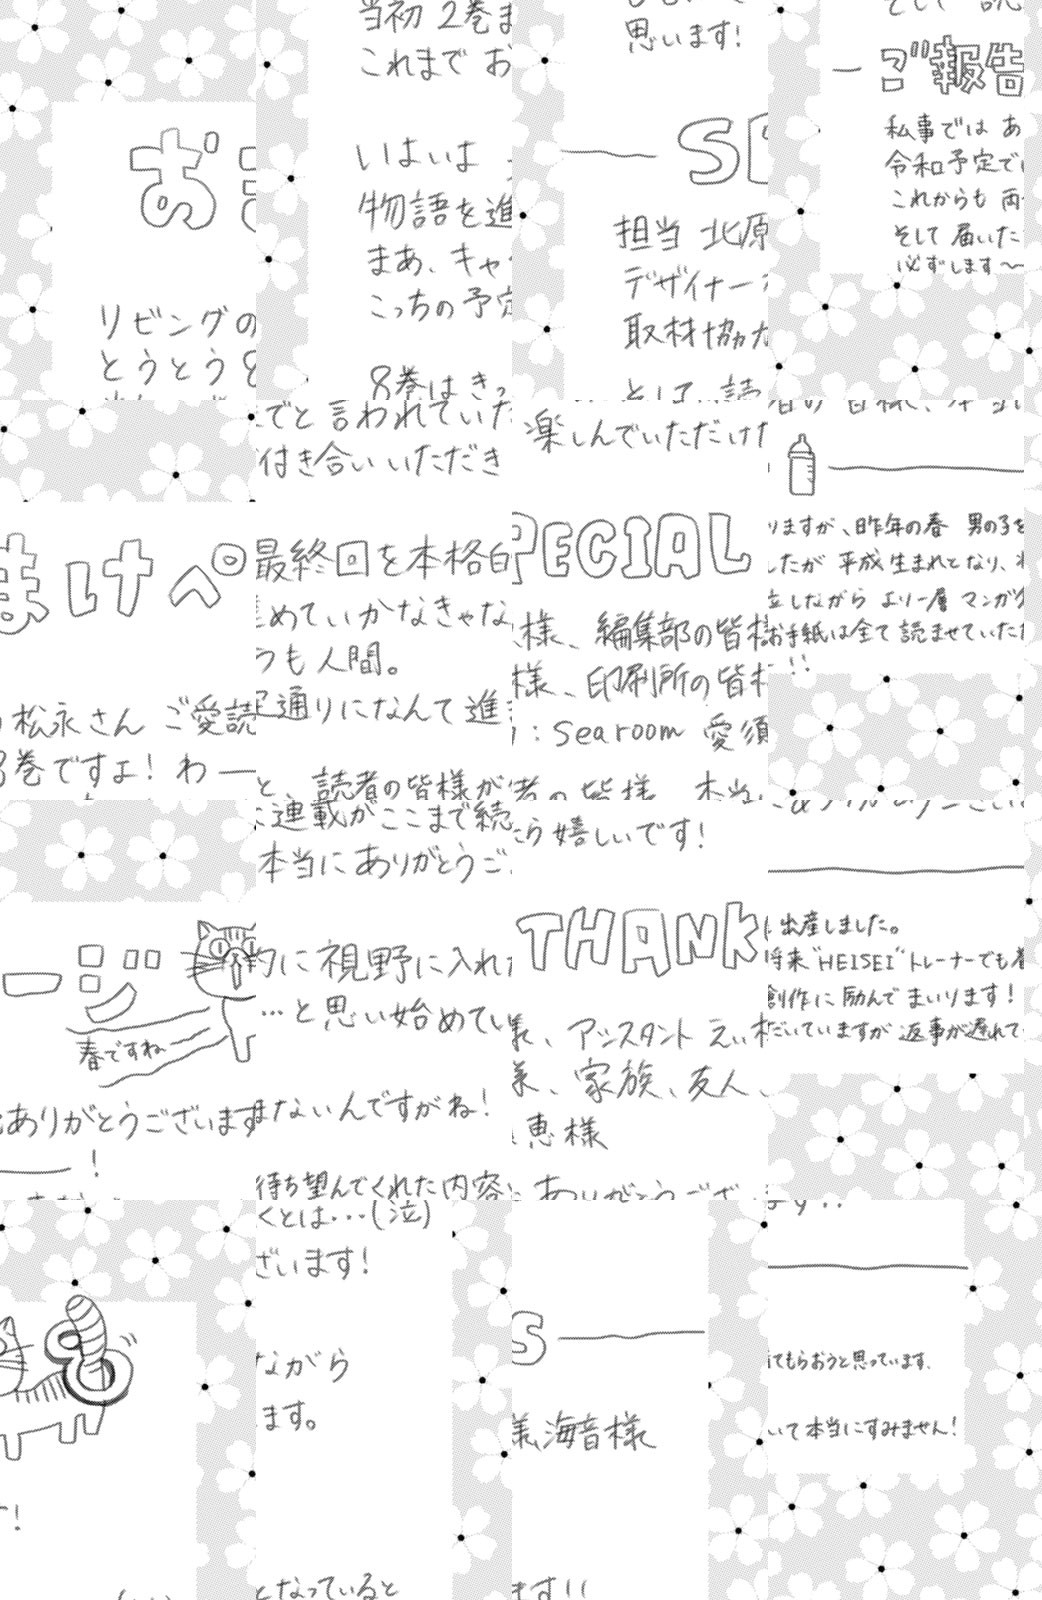 おまけページ 8
春ですね
リビングの松永さん ご愛読ありがとうございます!
とうとう8巻ですよ! わ———!
当初2巻までと言われていた連載がここまで続くとは…(泣)
これまで お付き合い いただき 本当に ありがとうございます!
いよいよ 最終回を本格的に視野に入れながら
物語を進めていかなきゃな…と思い始めています。
まあ、キャラも人間。
こっちの予定通りになんて進まないんですがね!
8巻はきっと、読者の皆様が待ち望んでくれた内容となっていると
思います! 楽しんでいただけたら嬉しいです!
SPECIAL THANKS
担当 北原様、編集部の皆様、アシスタント えい様、海音様
デザイナー様、印刷所の皆様、家族、友人、
取材協力:Searoom 愛須恵様
そして 読者の皆様、本当にありがとうございます!!
ご報告
私事では ありますが、昨年の春 男の子を出産しました。
令和予定でしたが 平成生まれとなり、将来"HEISEI"トレーナーでも着てもらおうと思っています。
これからも 両立しながら より一層 マンガ創作に励んでまいります!
そして 届いたお手紙は全て読ませていただいていますが 返事が遅れていて本当にすみません!
必ずします〜!!